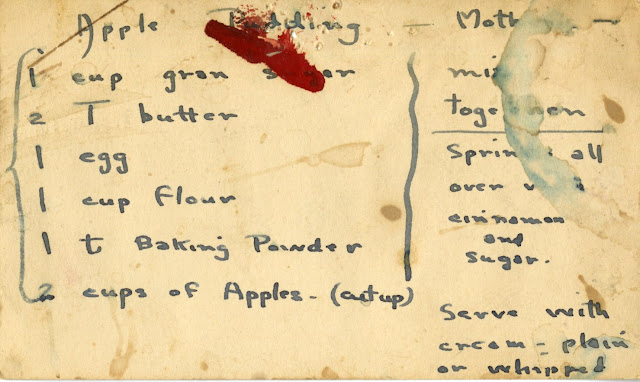 Apple Pudding —
1 cup gran sugar
2 T butter
1 egg
1 cup flour
1 t Baking Powder
2 cups of Apples - (cut up)
—
mix
together
Sprinkle all
over with
cinnamon
and
sugar.
Serve with
cream - plain
or whipped